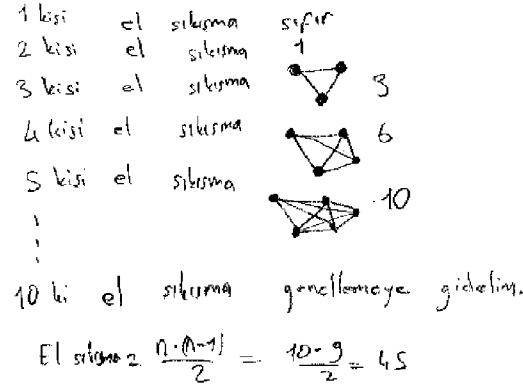 1 kişi el sıkışma sıfır
2 kişi el sıkışma 1
3 kişi el sıkışma 3
4 kişi el sıkışma 6
5 kişi el sıkışma 10
10 ki el sıkışma genellemeye gidelim.
El sıkışma = n.(n-1)/2 = 10.9/2 = 45